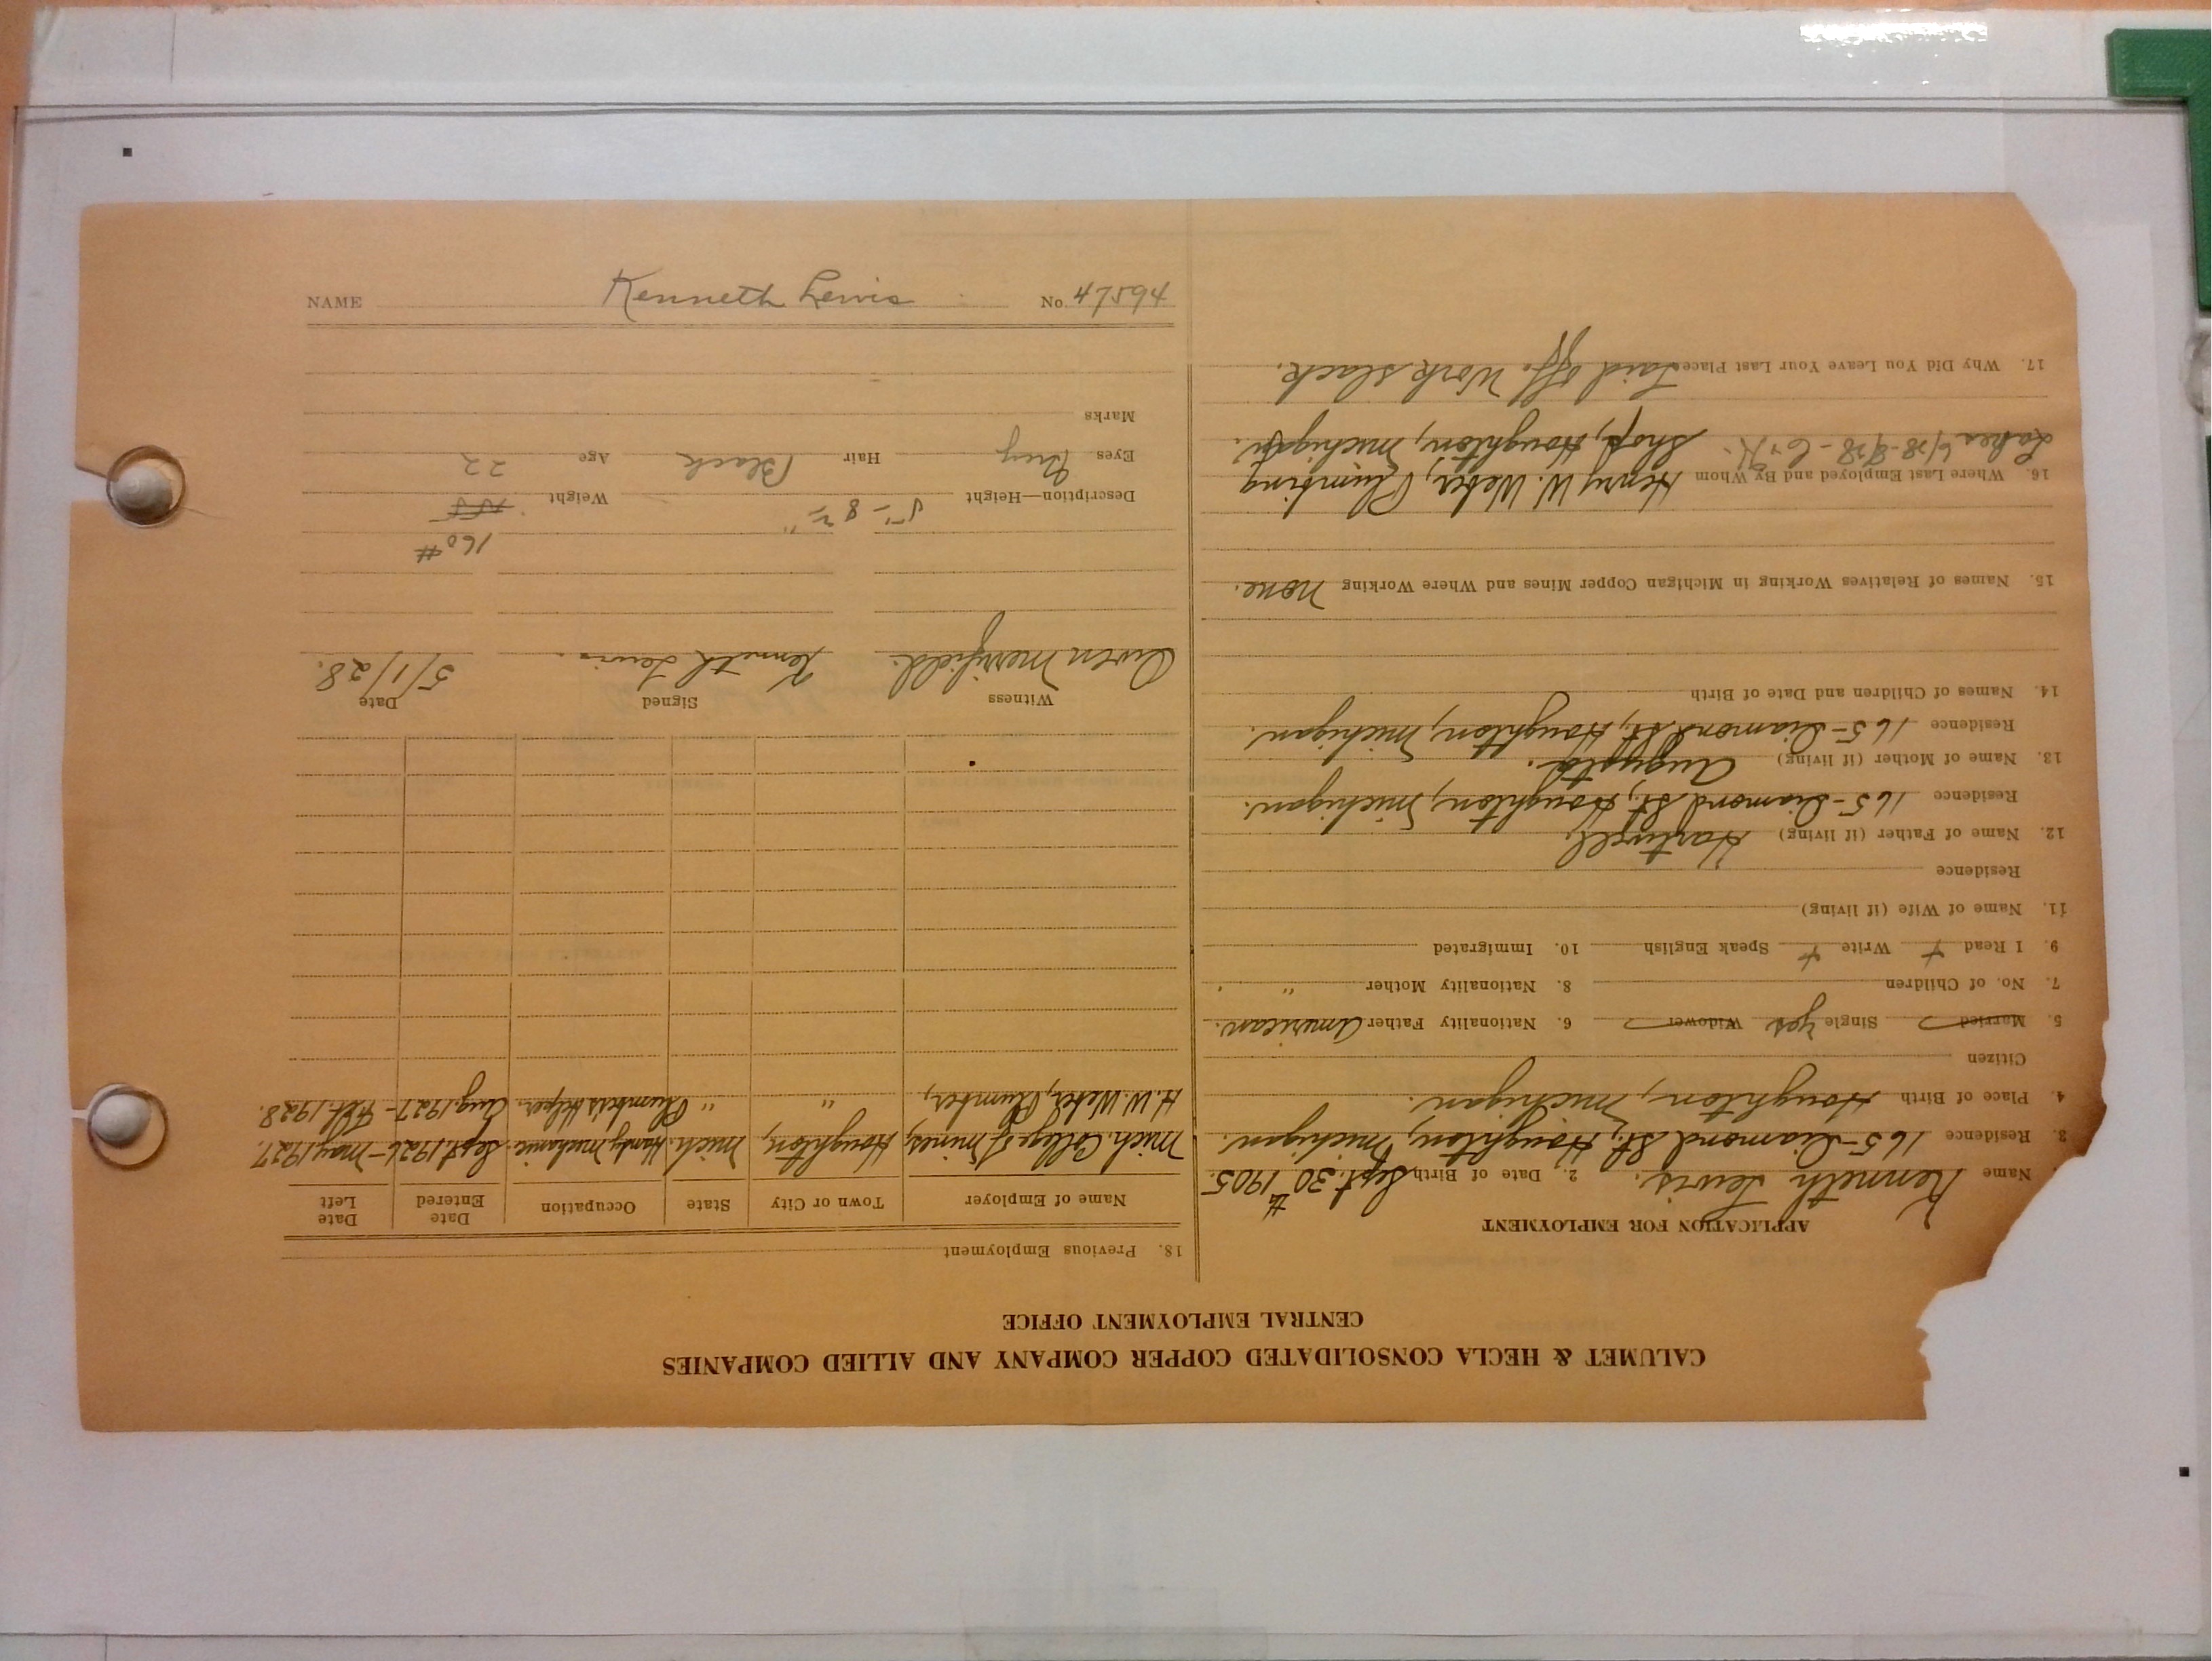 CALUMET & HECLA CONSOLIDATED COPPER COMPANY AND ALLIED COMPANIES
CENTRAL EMPLOYMENT OFFICE
APPLICATION FOR EMPLOYMENT
Name Kenneth Lewis. 2. Date of Birth Sept. 30th 1905.
3. Residence 165-Diamond St., Houghton, Michigan.
4. Place of Birth Houghton, Michigan.
Citizen
5. Married Single Yes Widower 6. Nationality Father American.
7. No. of Children 8. Nationality Mother "
9. I Read + Write + Speak English 10. Immigrated
11. Name of Wife (if living)
Residence
12. Name of Father (if living) Hartwell.
Residence 165-Diamond St., Houghton, Michigan.
13. Name of Mother (if living) Augusta.
Residence 165-Diamond St., Houghton, Michigan.
14. Names of Children and Date of Birth
15. Names of Relatives Working in Michigan Copper Mines and Where Working None.
16. Where Last Employed and By Whom Henry W. Weber, Plumbing
Shop, Houghton, Michigan.
17. Why Did You Leave Your Last Place Laid off. Work slack.
18. Previous Employment
Name of Employer Town or City State Occupation Date Entered Date Left
Mich. College of Mines, Houghton, Mich. Handy Mechanic. Sept. 1926 - May 1927.
H. W. Weber, Plumber, " " Plumbers Helper. Aug. 1927 - Feb. 1928.
Witness Signed Date
Owen Merrifield. Kenneth Lewis. 5/1/28.
160#
Description—Height 5'-8½" Weight 155
Eyes Grey Hair Black Age 22
Marks
NAME Kenneth Lewis No. 47594